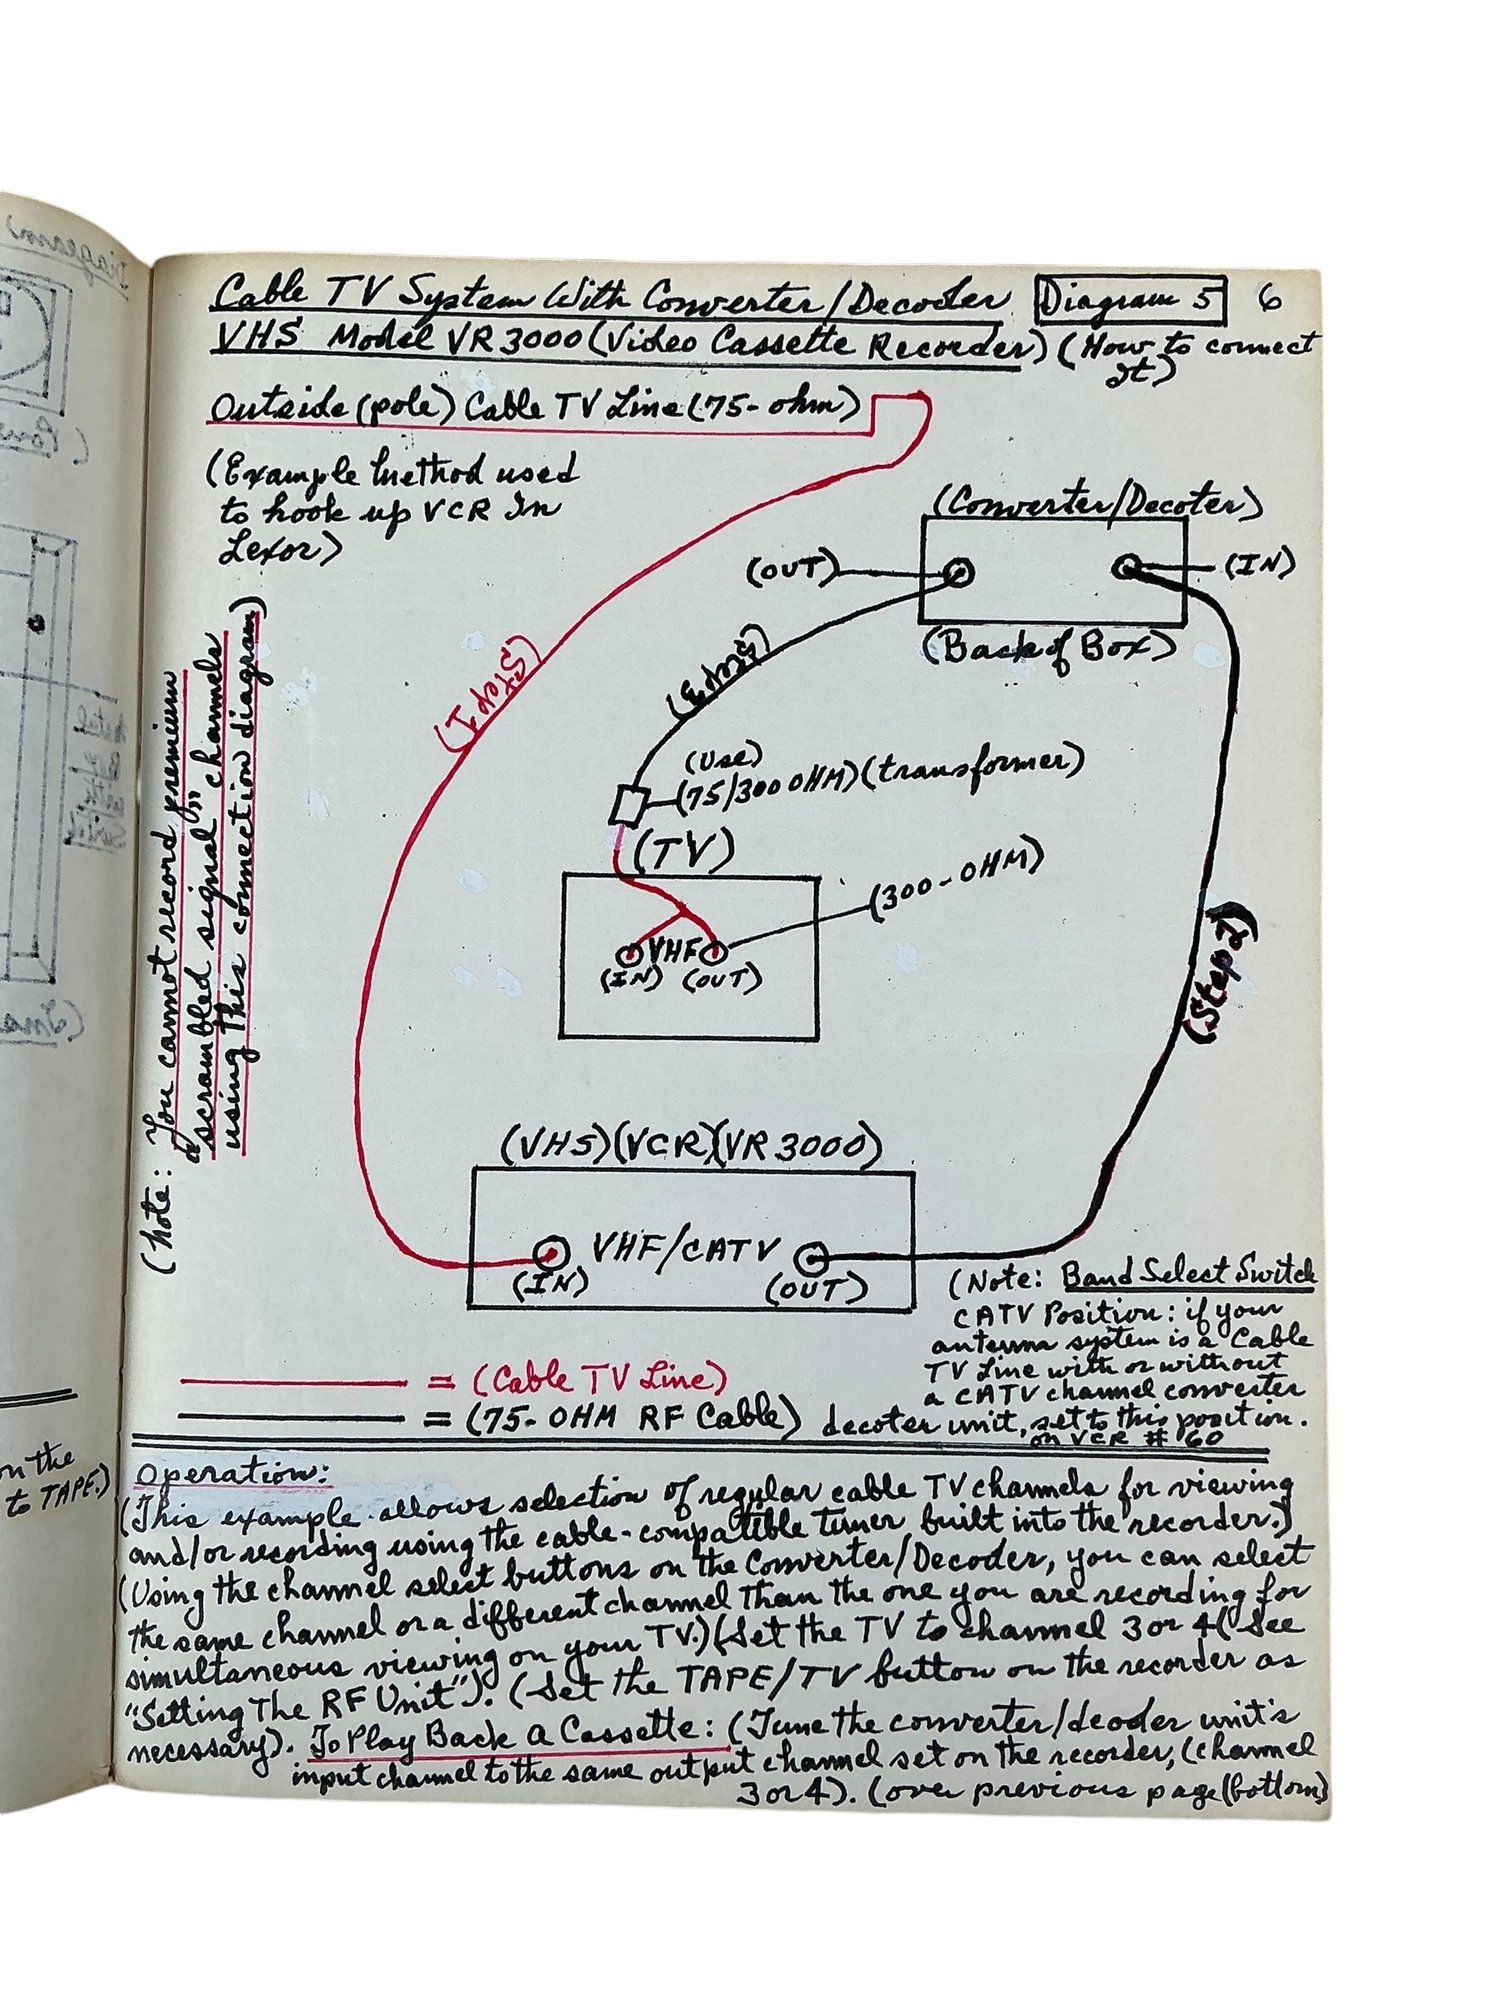 Cable TV System With Converter/Decoder Diagram 5 6
VHS Model VR3000 (Video Cassette Recorder) (How to connect
It)
Outside (pole) Cable TV Line (75-ohm)
(Example method used
to hook up VCR In
Lexor)
(Converter/Decoter)
(OUT)
(IN)
(Back of Box)
(Step 1)
(Step 3)
(Use)
(75/300 OHM) (transformer)
(TV)
(300-OHM)
VHF
(IN) (OUT)
(Step 2)
(Note: You cannot record premium
"scrambled signal" channels
using this connection diagram)
(VHS)(VCR)(VR3000)
VHF/CATV
(IN) (OUT)
(Note: Band Select Switch
CATV Position: if your
antenna system is a Cable
TV Line with or without
a CATV channel converter
decoter unit, set to this position.
on VCR # 60
= (Cable TV Line)
= (75-OHM RF Cable)
Operation:
(This example allows selection of regular cable TV channels for viewing
and/or recording using the cable-compatible tuner built into the recorder.)
(Using the channel select buttons on the Converter/Decoder, you can select
the same channel or a different channel than the one you are recording for
simultaneous viewing on your TV.) (Set the TV to channel 3 or 4 (See
"Setting The RF Unit"). (Set the TAPE/TV button on the recorder as
necessary). To Play Back A Cassette: (Tune the converter/deoder unit's
input channel to the same output channel set on the recorder, (channel
3 or 4). (over previous page (bottom)
on the
to TAPE.)